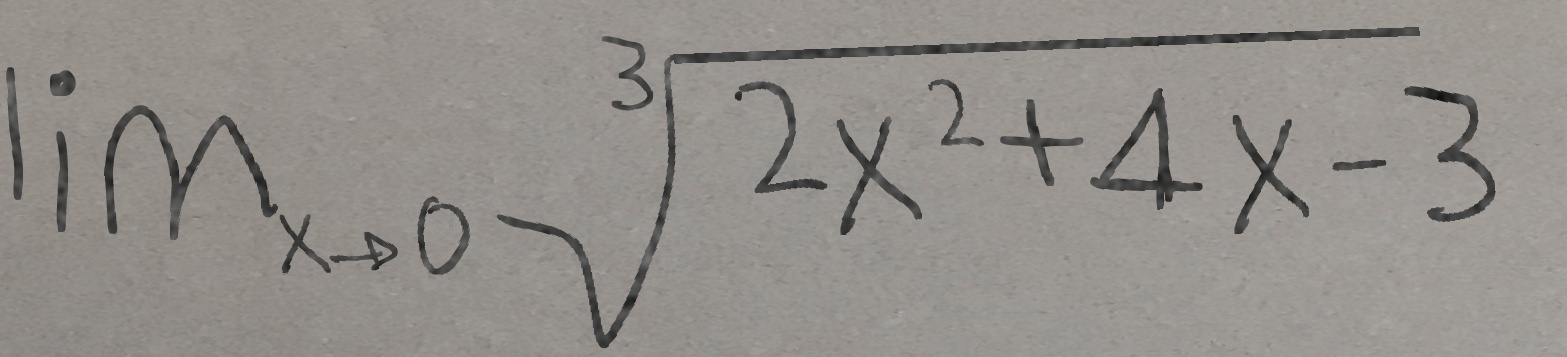 lim x→0 ∛(2x² + 4x - 3)